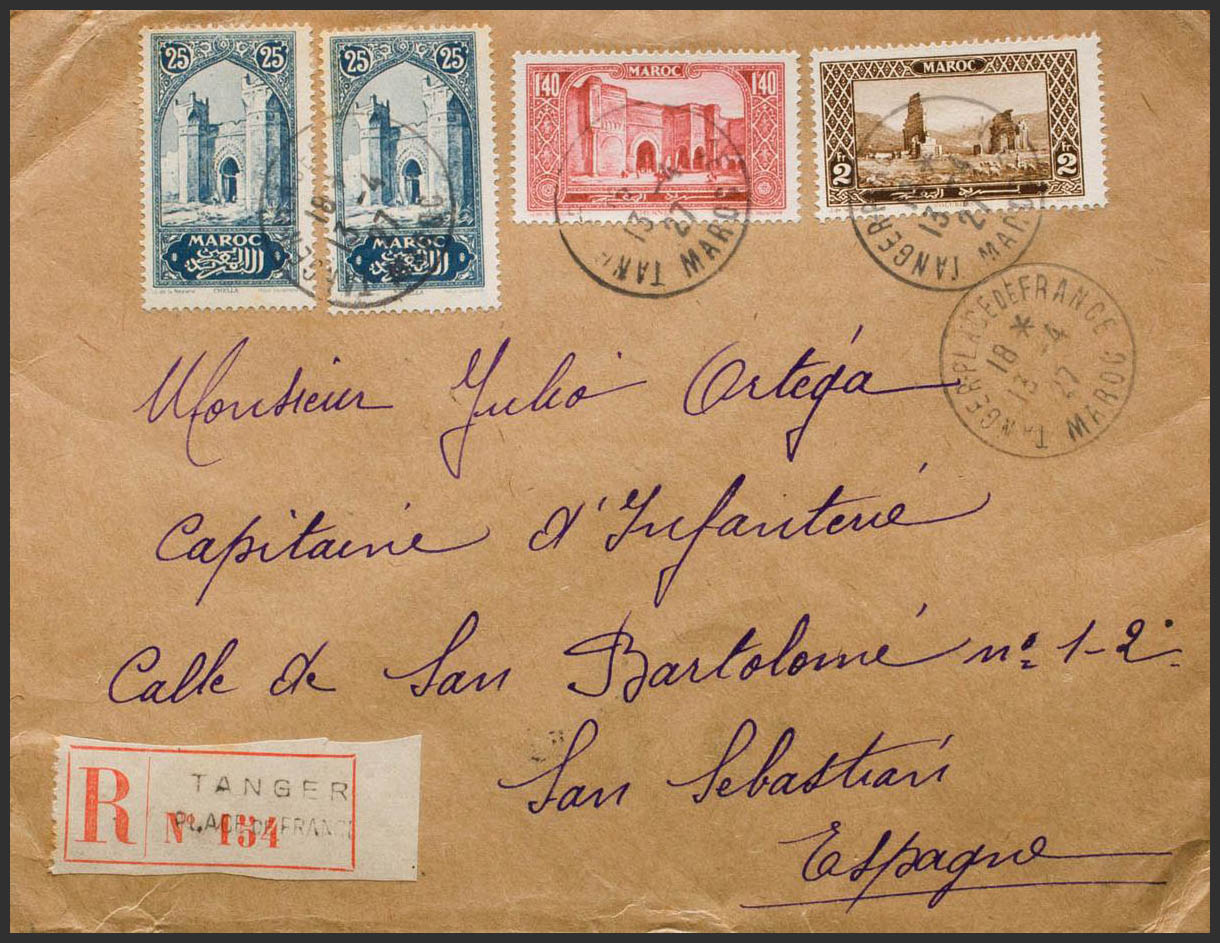 25 25
MAROC
المغرب
CHELLA
25 25
MAROC
المغرب
1F40 MAROC 1F40
MAROC
2 fr 2 fr
13 -4 27
TANGER MAROC
18 13 -4 27
TANGER-PLACE DE FRANCE
TANGER MAROC
Monsieur Julio Ortéga
Capitaine d'Infanterie
Calle de San Bartolomé nº 1-2º
San Sebastián
Espagne
R
TANGER
PLACE DE FRANCE
Nº 154